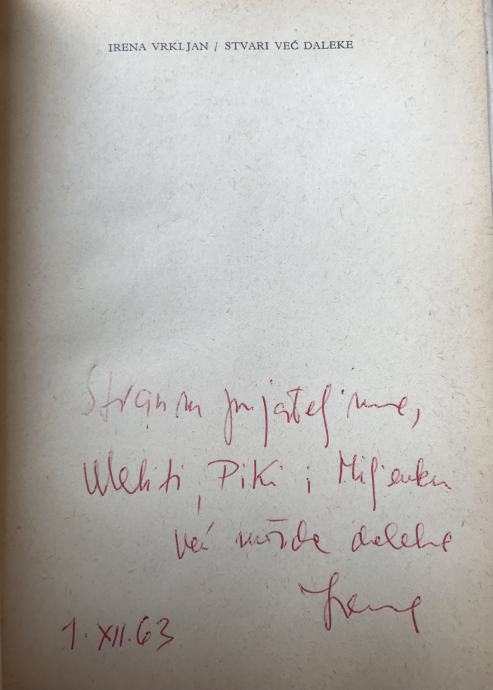 IRENA VRKLJAN / STVARI VEĆ DALEKE
prijateljima,
Piki i Miljenku
već možda daleke
Irena
1. XII. 63